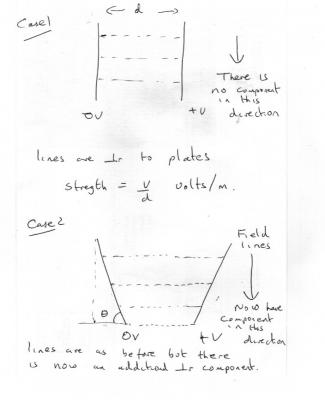 Case1
← d →
There is
no component
in this
direction
0V
+V
lines are ⊥r to plates
Stregth = V/d volts/m.
Case2
Field
lines
Now have
component
in this
direction
θ
0V
+V
lines are as before but there
is now an addctional ⊥r component.